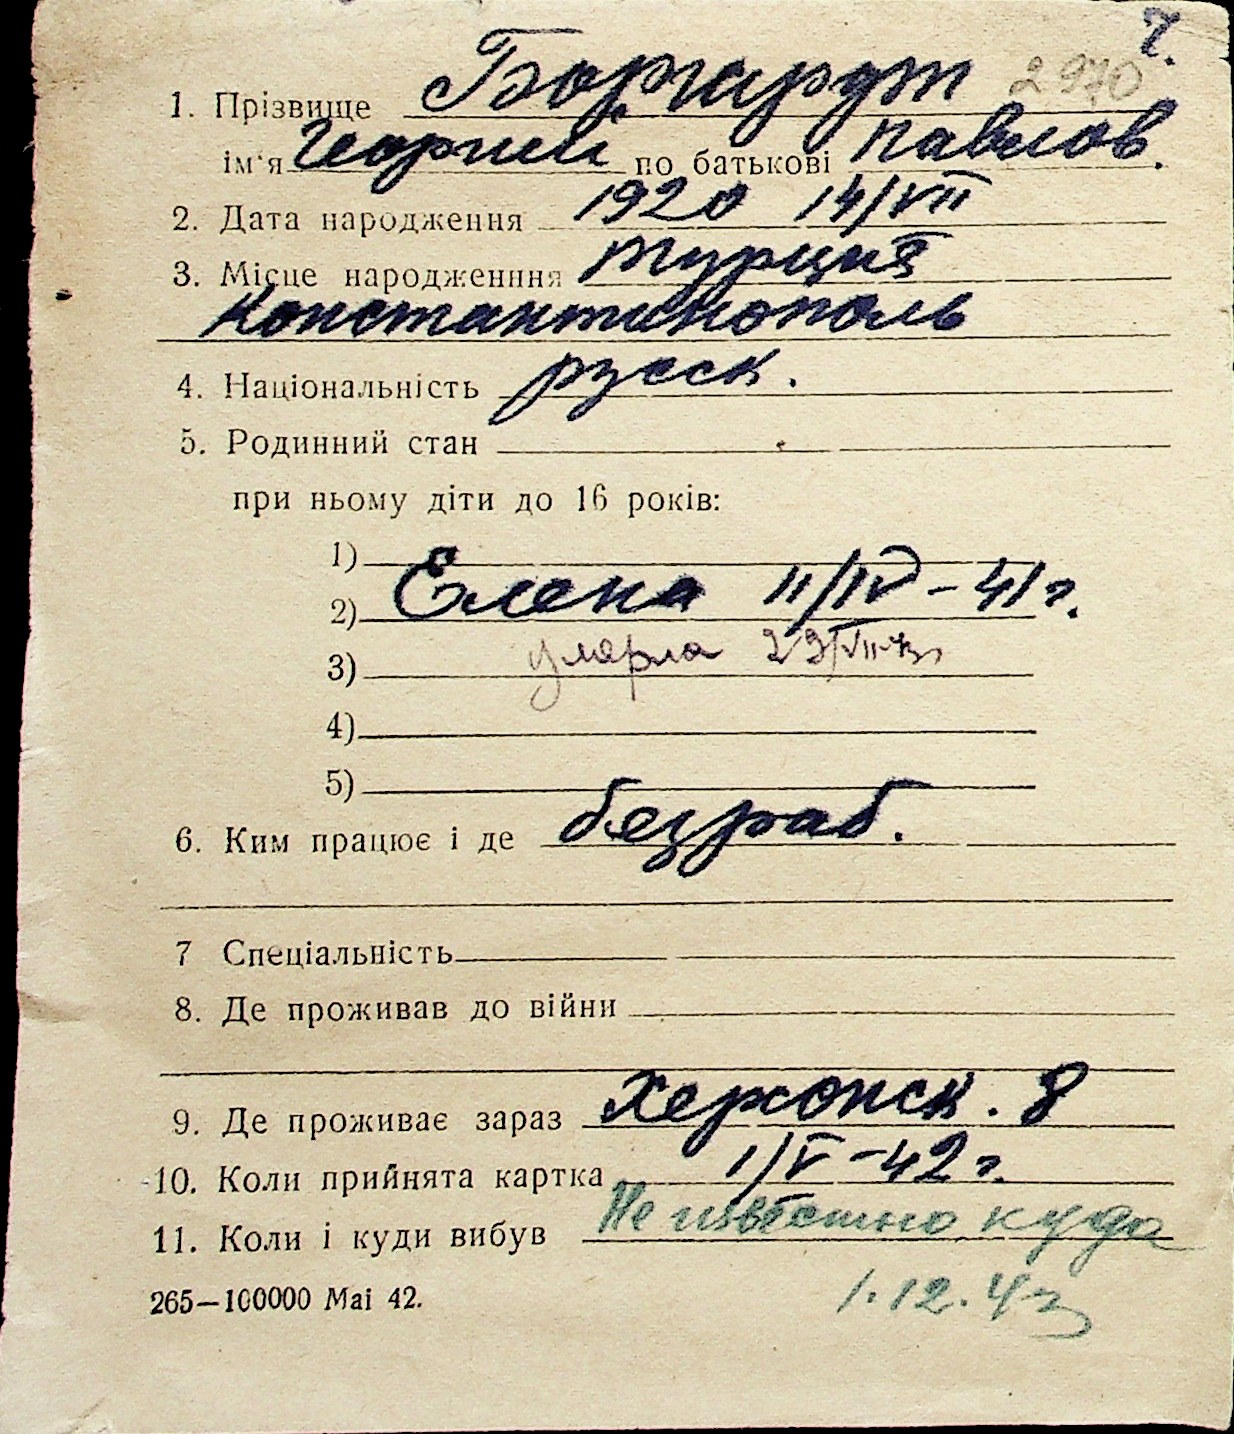 ч.
2970
1. Прізвище Боргардт
ім'я Георгий по батькові Павлов.
2. Дата народження 1920 14/VII
3. Місце народженння Турция
Константинополь
4. Національність русск.
5. Родинний стан
при ньому діти до 16 років:
1)
2) Елена 11/IV-41 г.
3) умерла 29/VII-43 г
4)
5)
6. Ким працює і де безраб.
7 Спеціальність
8. Де проживав до війни
9. Де проживає зараз Херсонск. 8
10. Коли прийнята картка 1/V-42 г.
11. Коли і куди вибув Неизвестно куда
1.12.43
265—100000 Mai 42.